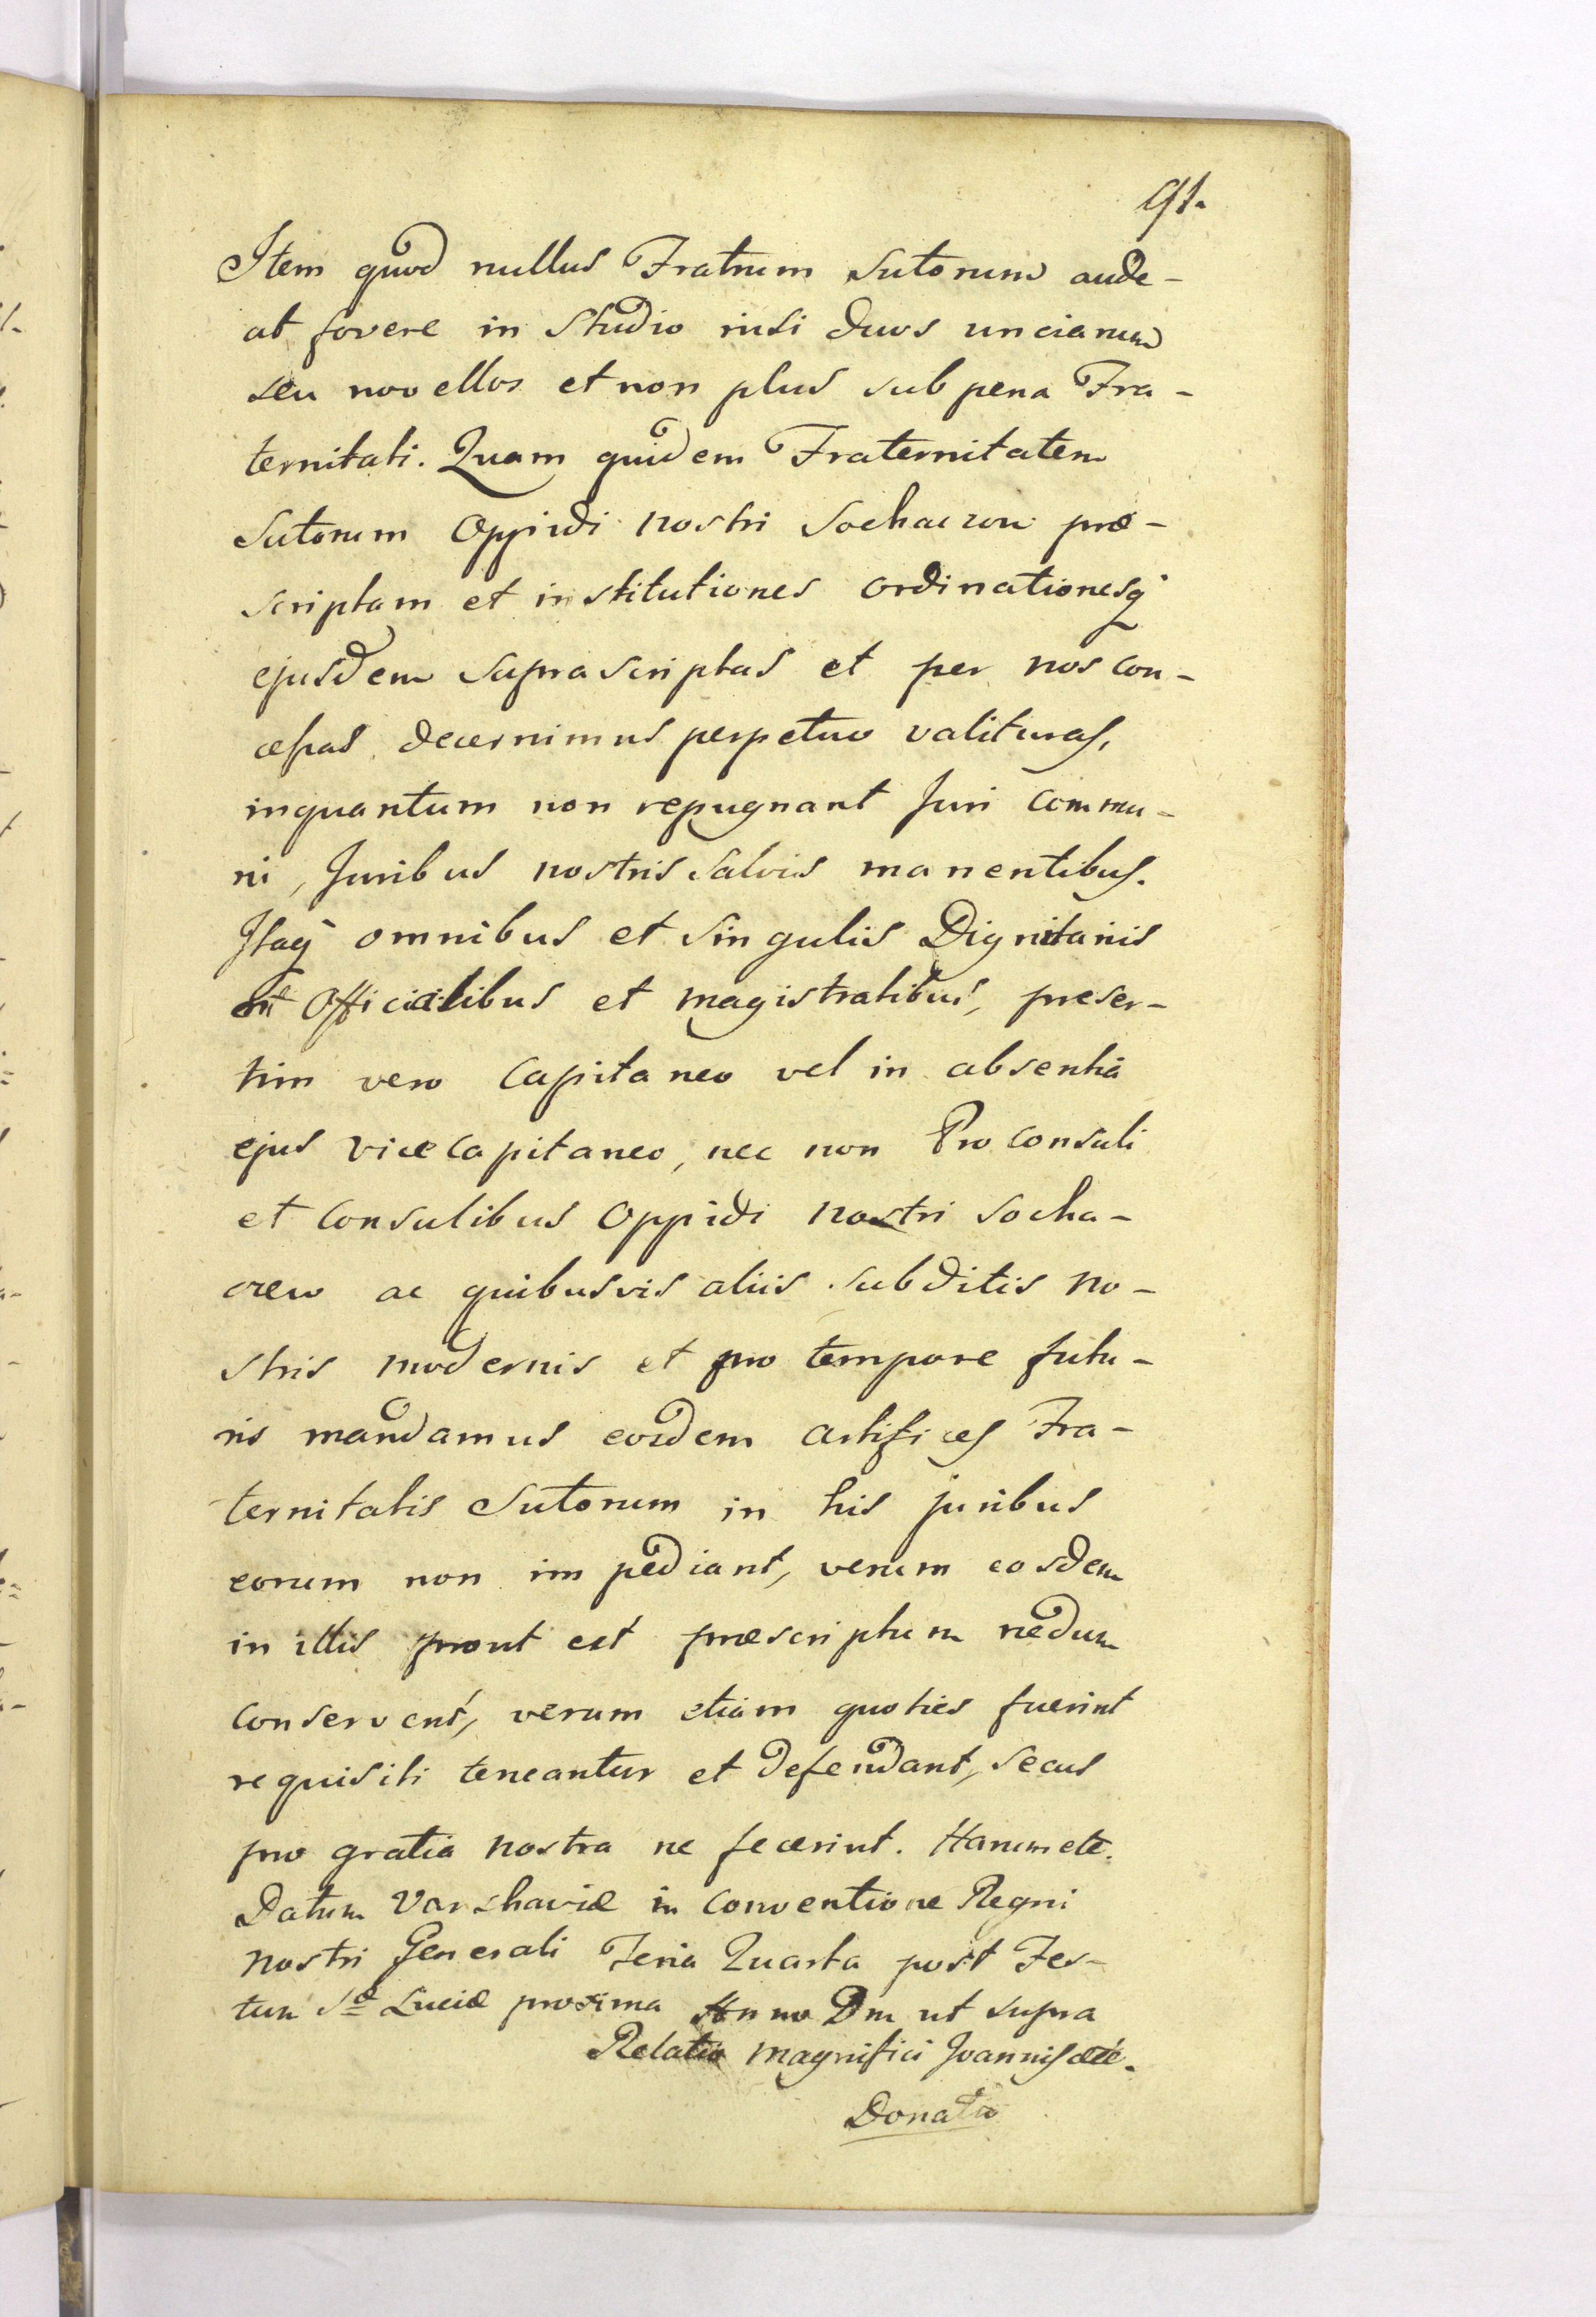 91.
Item quod nullus Fratrum Sutorum aude-
at fovere in Studio nisi duos uncianum
seu novellos et non plus sub pena Fra-
ternitati. Quam quidem Fraternitatem
Sutorum Oppidi nostri Sochaczew præ-
scriptam et institutiones ordinationesq
ejusdem suprascriptas et per nos con-
cessas decernimus perpetuo valituras,
inquantum non repugnant Juri commu-
ni, Juribus nostris salvis manentibus.
Itaq omnibus et singulis Dignitariis
Officialibus et magistratibus, preser-
tim vero Capitaneo vel in absentia
ejus vicecapitaneo, nec non Proconsuli
et Consulibus Oppidi nostri Socha-
czew ac quibusvis aliis subditis no-
stris modernis et pro tempore futu-
ris mandamus eosdem artifices Fra-
ternitatis Sutorum in his juribus
eorum non impediant, verum eosdem
in illis prout est præscriptum nedum
conservent, verum etiam quoties fuerint
requisiti teneantur et defendant, secus
pro gratia nostra ne fecerint. Harum etc.
Datum Varshaviæ in Conventione Regni
nostri Generali Feria Quarta post Fes-
tum Sæ Luciæ proxima Anno Dni ut supra
Relatio Magnifici Joannis etc.
Donatio